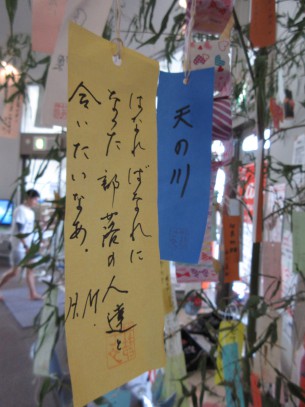 はなればなれに
なった部落の人達と
合いたいなあ。
H.M.
天の川